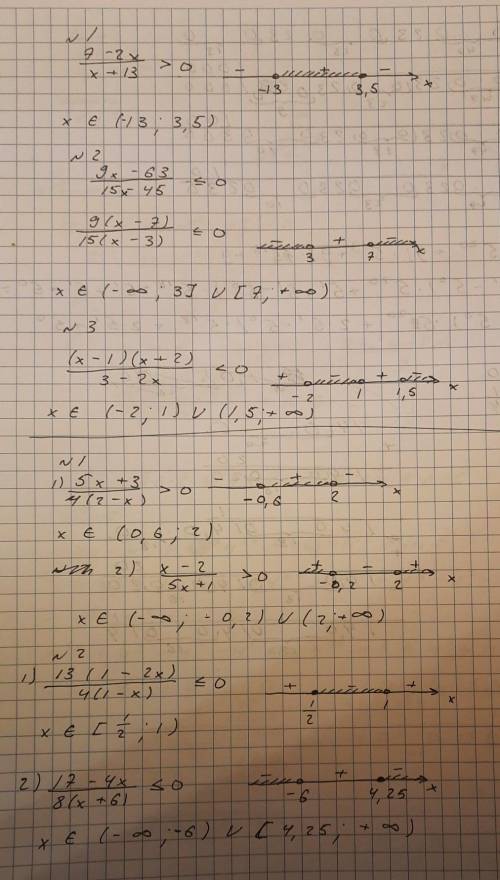 №1
7-2x / x+13 > 0   -   +   -
-13   3,5   x
x ∈ (-13; 3,5)
№2
9x-63 / 15x-45 ≤ 0
9(x-7) / 15(x-3) ≤ 0   -   +   -
3   7   x
x ∈ (-∞; 3] ∪ [7; +∞)
№3
(x-1)(x+2) / 3-2x < 0   +   -   +   -
-2   1   1,5   x
x ∈ (-2; 1) ∪ (1,5; +∞)
№1
1) 5x+3 / 4(2-x) > 0   -   +   -
-0,6   2   x
x ∈ (0,6; 2)
2) x-2 / 5x+1 > 0   +   -   +
-0,2   2   x
x ∈ (-∞; -0,2) ∪ (2; +∞)
№2
1) 13(1-2x) / 4(1-x) ≤ 0   +   -   +
1/2   1   x
x ∈ [1/2; 1)
2) 17-4x / 8(x+6) ≤ 0   -   +   -
-6   4,25   x
x ∈ (-∞; -6) ∪ [4,25; +∞)